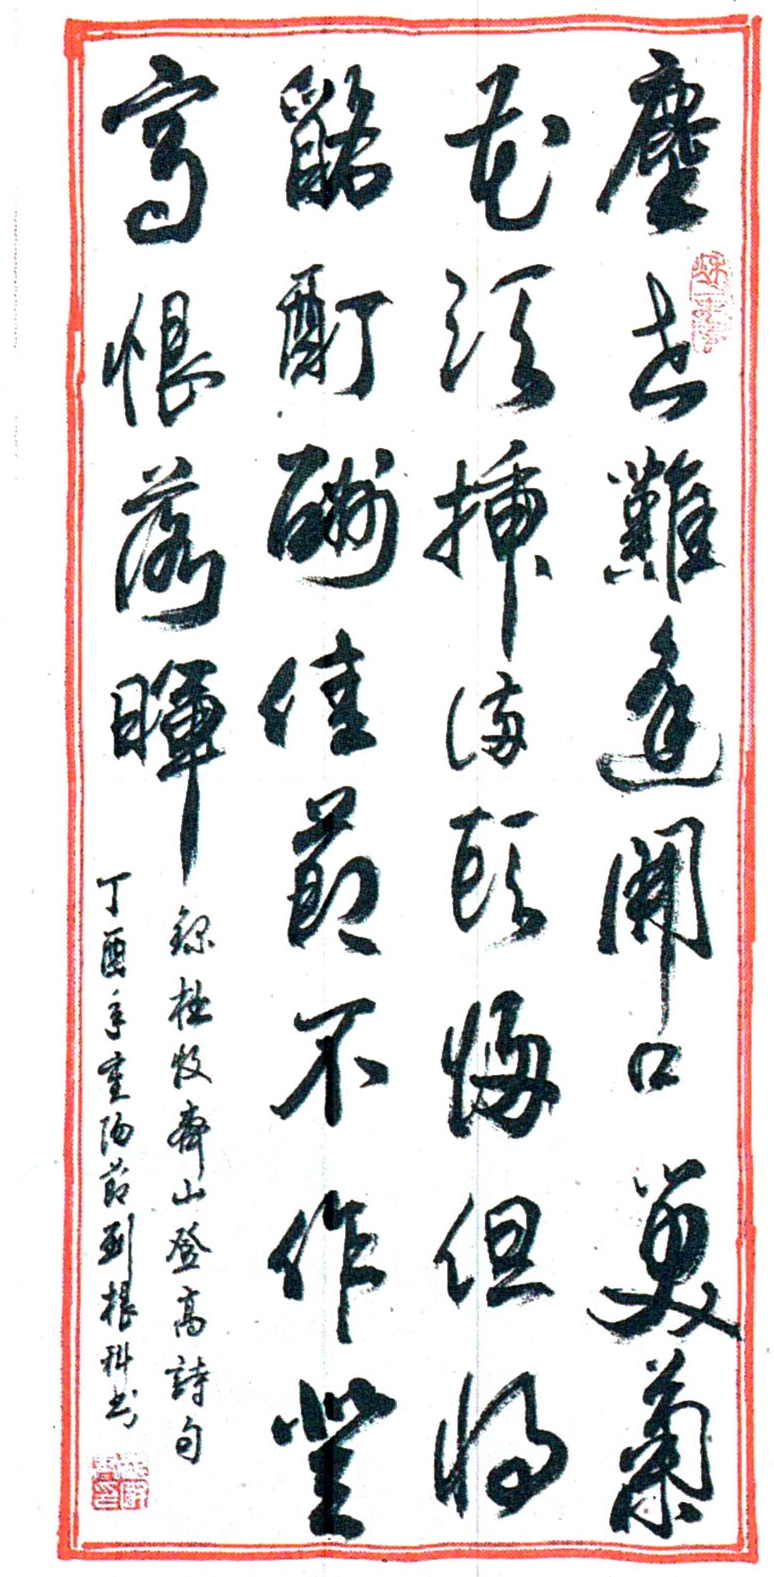 塵世難逢開口笑菊
花須插滿頭歸但將
酩酊酬佳節不作登
高恨落暉
錄杜牧齊山登高詩句
丁酉年重陽節劉根科书